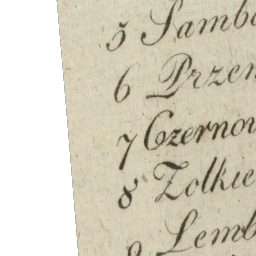 5 Sambo
6 Przem
7 Czernow
8 Zolkie
9 Lemb